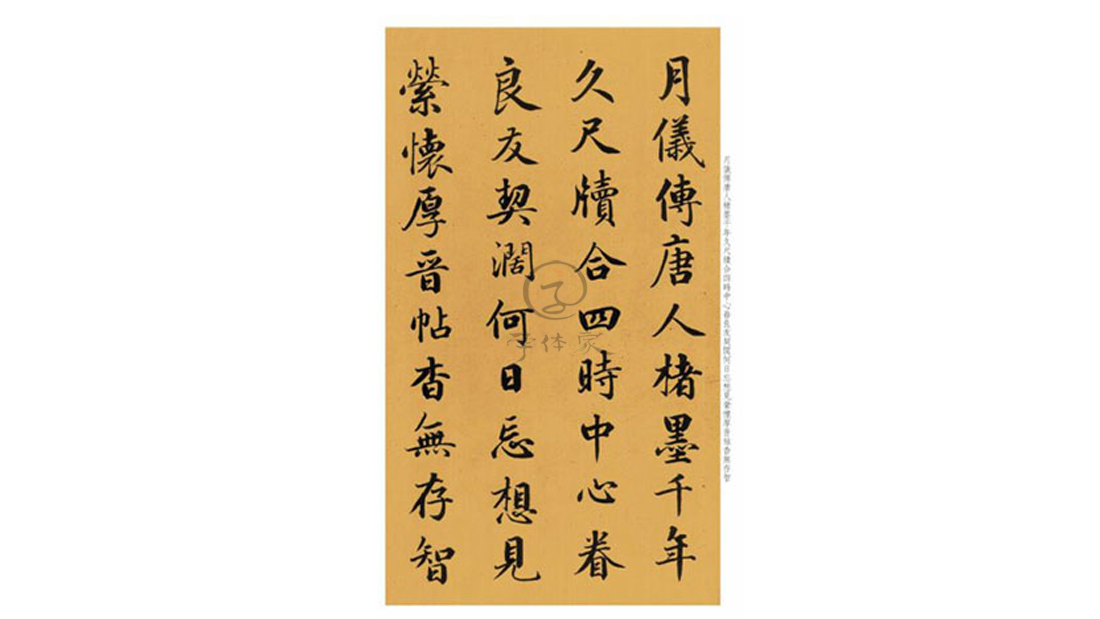 月儀傳唐人楮墨千年
久尺牘合四時中心眷
良友契濶何日忘想見
縈懷厚晉帖杳無存智
月儀傳唐人楮墨千年久尺牘合四時中心眷良友契闊何日忘想見縈懷厚晉帖杳無存智
字体家